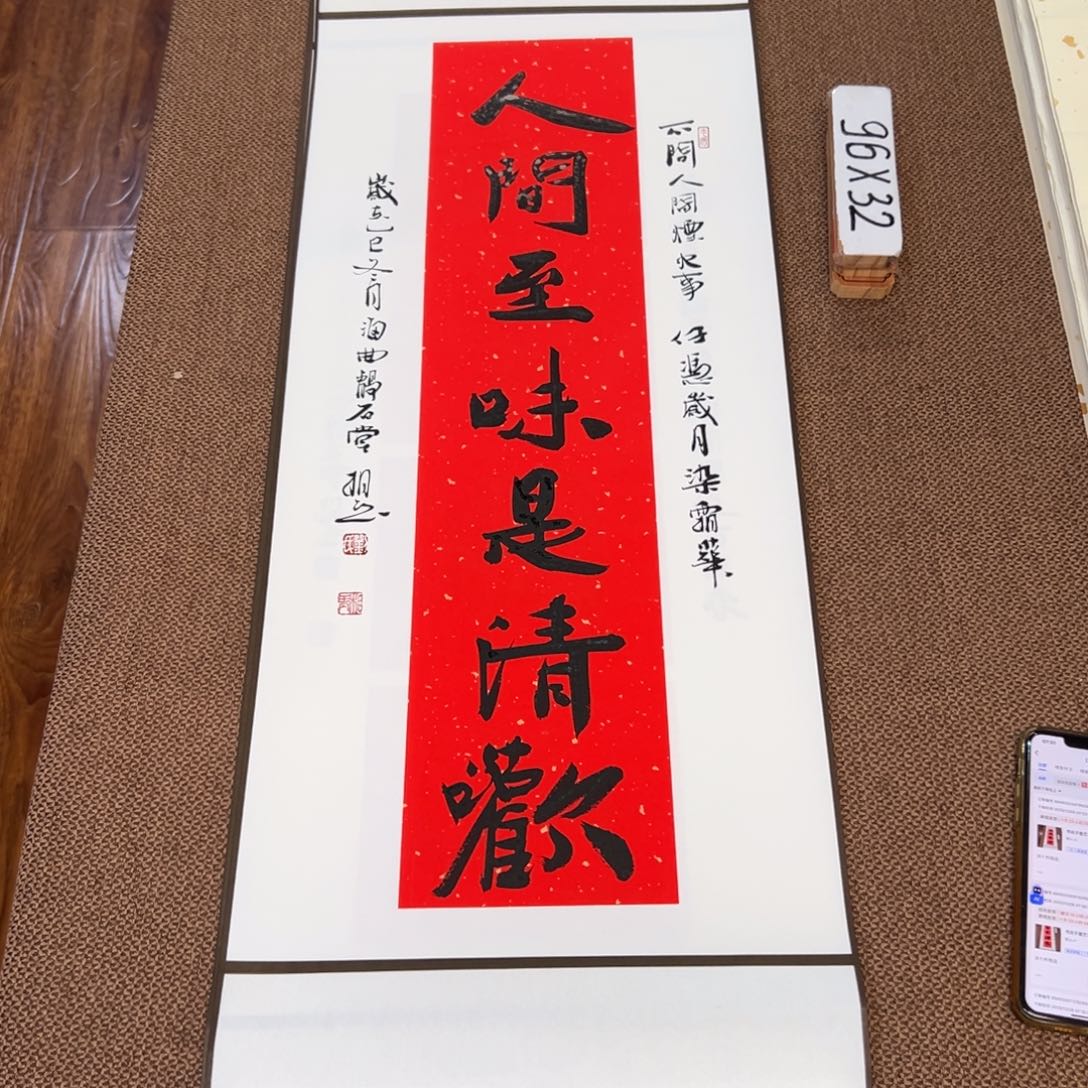 不問人間煙火事 任憑歲月染霜華
人間至味是清歡
歲在乙巳冬月海曲靜石堂
96X32